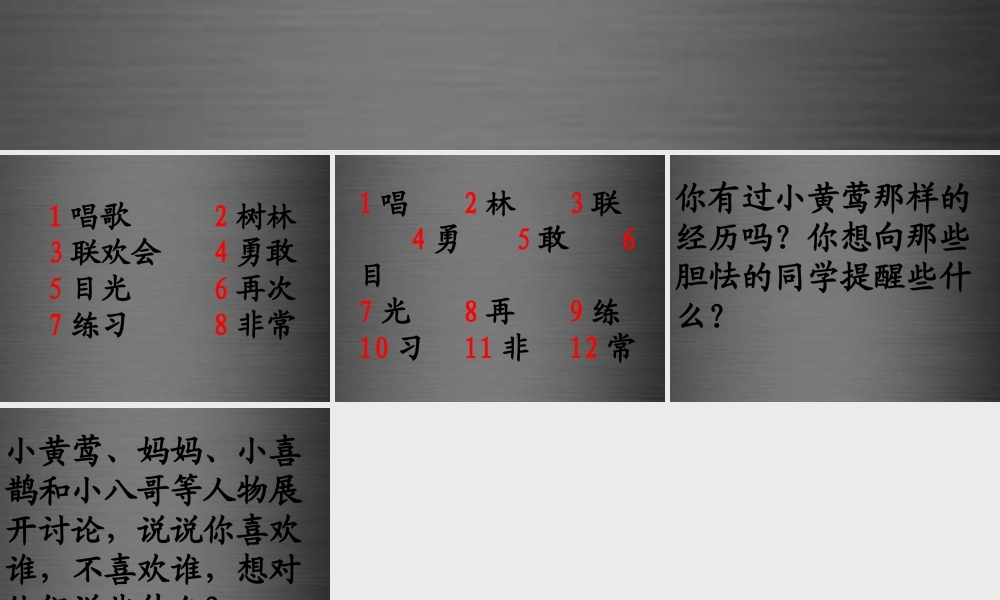 1 唱歌 2 树林
3 联欢会 4 勇敢
5 目光 6 再次
7 练习 8 非常
1 唱 2 林 3 联
4 勇 5 敢 6
目
7 光 8 再 9 练
10 习 11 非 12 常
你有过小黄莺那样的
经历吗？你想向那些
胆怯的同学提醒些什
么？
小黄莺、妈妈、小喜
鹊和小八哥等人物展
开讨论，说说你喜欢
谁，不喜欢谁，想对